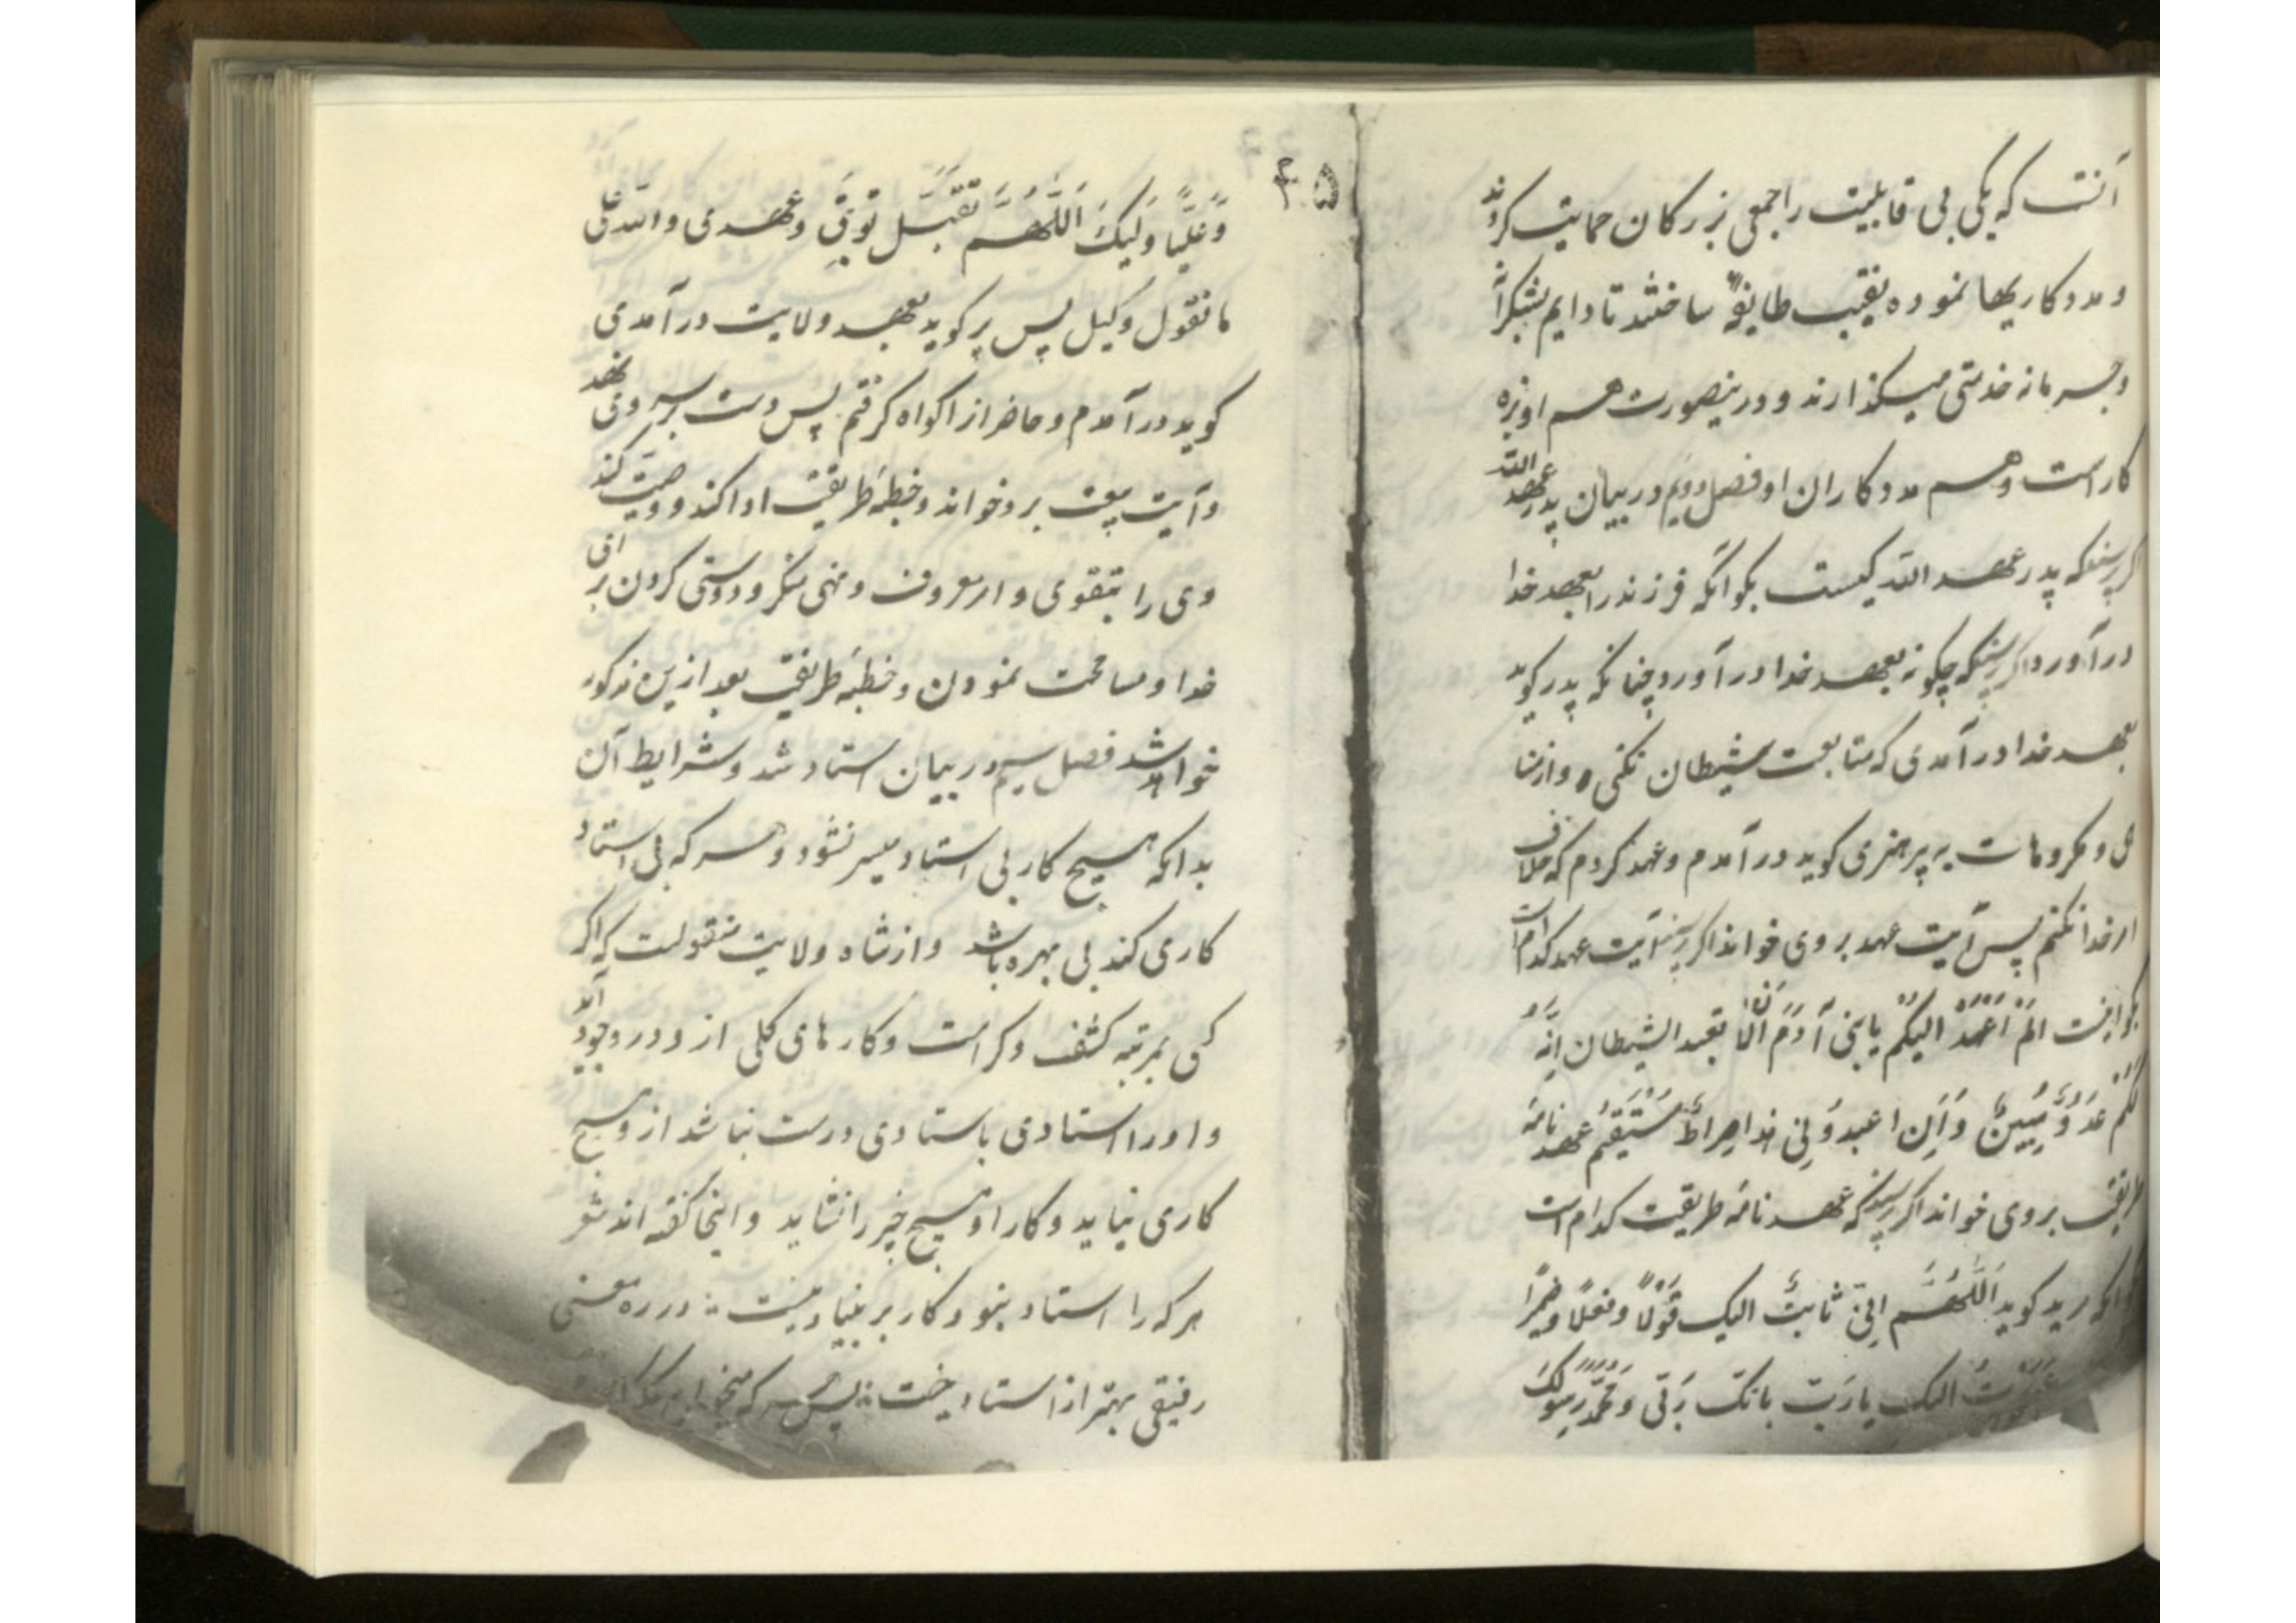 آنست که یکی بی قابلیت را جمعی بزرکان حمایت کردند
و مددکاریها نموده نقیب طایفهٔ ساختند تا دایم بشکرانه
و جرمانه خدمتی میکذارند و درینصورت هم اوبزه
کار است و هم مددکاران او فصل دویم در بیان پدر عهد الله
کر پرسند که پدر عهد الله کیست بکو آنکه فرزند را بعهد خدا
درآورد اکر پرسند که چکونه بعهد خدا درآورد چنانکه پدر کوید
بعهد خدا درآمدی که متابعت شیطان نکنی و از منا
هی و مکروهات به پرهیزی کوید درآمدم و عهد کردم که خلاف
امر خدا نکنم پس آیت عهد بر وی خواند اکر پرسند آیت عهد کدام است
بکو اینست الم اعهد الیکم یا بنی آدم ان لا تعبد الشیطان انه
لکم عدو مبین و ان اعبدونی هذا صراط مستقیم عهد نامه
طریقت بر وی خواند اکر پرسند که عهد نامه طریقت کدام است
آنکه مرید کوید اللهم انی ثابت الیک قولا و فعلا و ضمیرا
الیک یا رب بانک ربی و محمد رسولک
۴۵
و علیا ولیک اللهم تقبل توبتی و عهدی و الله علی
ما نقول وکیل پس پیر کوید بعهد ولایت درآمدی
کوید درآمدم و حاضرانرا کواه کرفتم پس دست بر سر وی نهد
و آیت بیعت برو خواند و خطبهٔ طریقت ادا کند و وصیت کند
وی را بتقوی و امر معروف و نهی منکر و دوستی کردن برای
خدا و مسامحت نمودن و خطبهٔ طریقت بعد ازین مذکور
خواهد شد فصل سیم در بیان استاد شد و شرایط آن
بدانکه هیچ کار بی استاد میسر نشود و هر که بی استاد
کاری کند بی بهره باشد و از شاه ولایت منقولست که اکر
کسی بمرتبه کشف و کرامت و کارهای کلی ازو در وجود آید
و او را استادی باستادی درست نباشد ازو هیچ
کاری نیاید و کار او هیچ چیز را نشاید و اینجا کفته اند شعر
هر که را استاد نبود کار بر بنیاد نیست : در ره معنی
رفیقی بهتر از استاد نیست : پس هر که میخواهد که